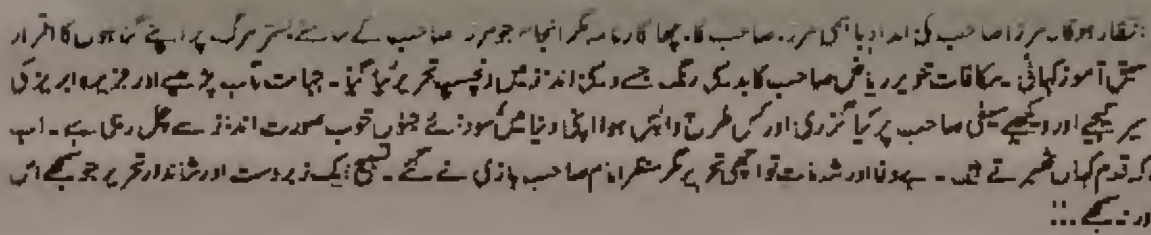 انتظار ہوگا۔ مرزا صاحب کی امداد باہمی مرزا صاحب کا اچھا کارنامہ مگر انجام جو مرزا صاحب کے سامنے بستر مرگ پر اپنے گناہوں کا اقرار
سبق آموز کہانی۔ مکافات تنویر ریاض صاحب کا بدیسی رنگ جسے دیسی انداز میں دلچسپ تحریر کیا گیا۔ جہامت تاب پڑھیے اور جزیرہ ابریز کی
سیر کیجیے اور دیکھیے سیفی صاحب پر کیا گزری اور کس طرح واپس ہوا اپنی دنیا میں سودائے جنوں خوب صورت انداز سے چل رہی ہے۔ اب
کہ قدم کہاں ٹھہرتے ہیں۔ بے وفا اور شہ مات تو اچھی تحریر مگر منظر امام صاحب بازی لے گئے۔ تسبیح ایک زبردست اور شاندار تحریر جو مجھے اس
اور مجھے...!!